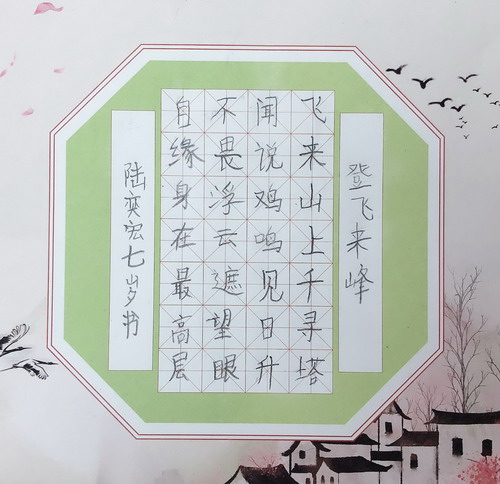 登飞来峰
飞来山上千寻塔
闻说鸡鸣见日升
不畏浮云遮望眼
自缘身在最高层
陆奕宏七岁书